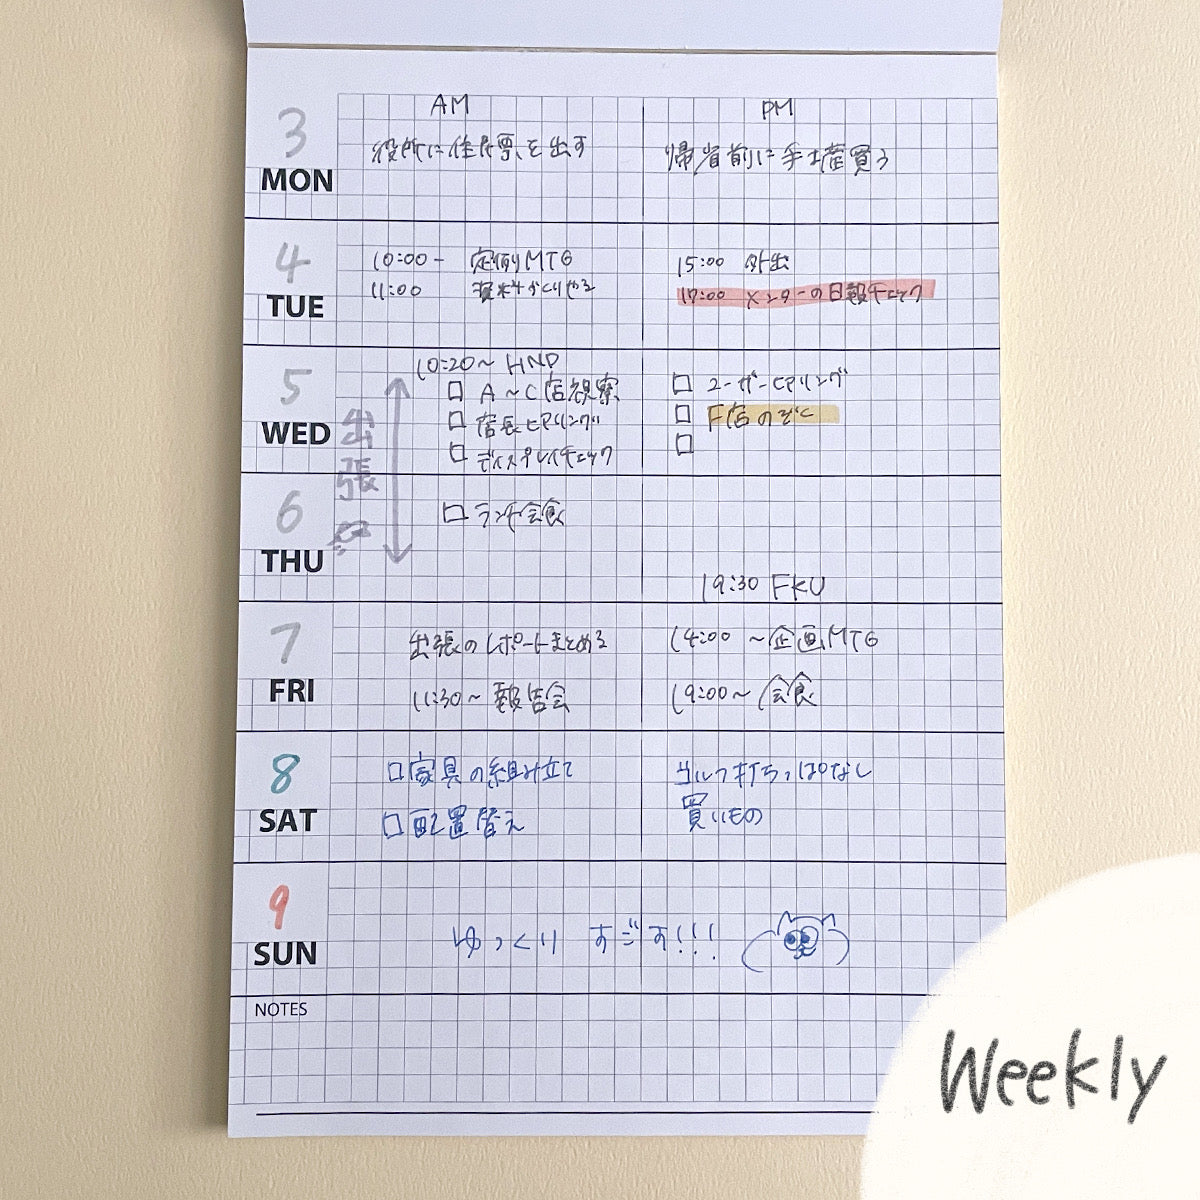 AM PM
3
MON
役所に住民票を出す
帰省前に手土産買う
4
TUE
10:00- 定例MTG
11:00 資料づくりやる
15:00 外出
17:00 メンターの日報チェック
5
WED
出張
10:20〜 HND
A〜C店視察
店長ヒアリング
ディスプレイチェック
ユーザーヒアリング
F店のぞく
6
THU
ランチ会食
19:30 FKU
7
FRI
出張のレポートまとめる
11:30〜 報告会
14:00 〜企画MTG
19:00〜 会食
8
SAT
家具の組み立て
配置替え
打ちっぱなし
買いもの
9
SUN
ゆっくり すごす!!!
NOTES
Weekly